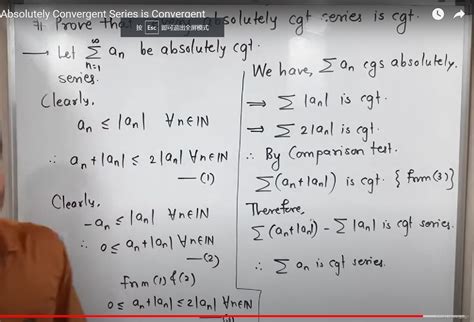 Absolutely Convergent Series is Convergent
按 Esc 即可退出全屏模式
# Prove that absolutely cgt series is cgt.
→ Let ∞∑n=1 an be absolutely cgt.
series.
Clearly,
an ≤ |an| ∀n∈IN
∴ an+|an| ≤ 2|an| ∀n∈IN
—(1)
Clearly,
-an ≤ |an| ∀n∈IN
∴ 0 ≤ an+|an| ∀n∈IN
—(2)
from (1) & (2)
0 ≤ an+|an| ≤ 2|an| ∀n∈IN
We have, ∑an cgs absolutely.
⇒ ∑|an| is cgt.
⇒ ∑2|an| is cgt.
∴ By Comparison test.
∑(an+|an|) is cgt. { from (3)}
Therefore,
∑(an+|an|) - ∑|an| is cgt series.
∴ ∑an is cgt series.